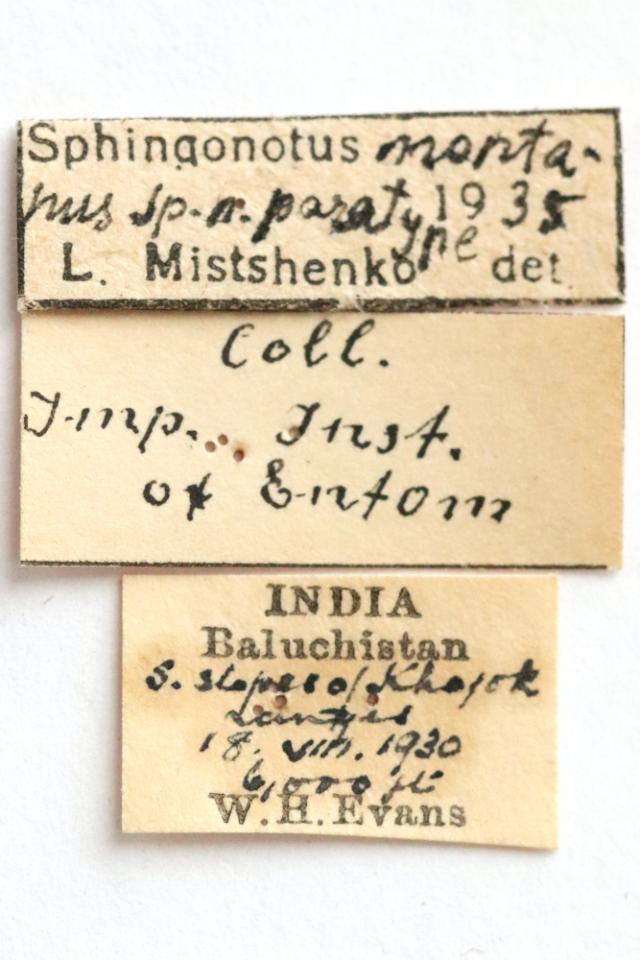 Sphingonotus monta-
nus sp. n. paratype 1935
L. Mistshenko det.
Coll.
Imp. Inst.
of Entom
INDIA
Baluchistan
S. slopes of
18. VIII. 1930
6,000 ft
W. H. Evans